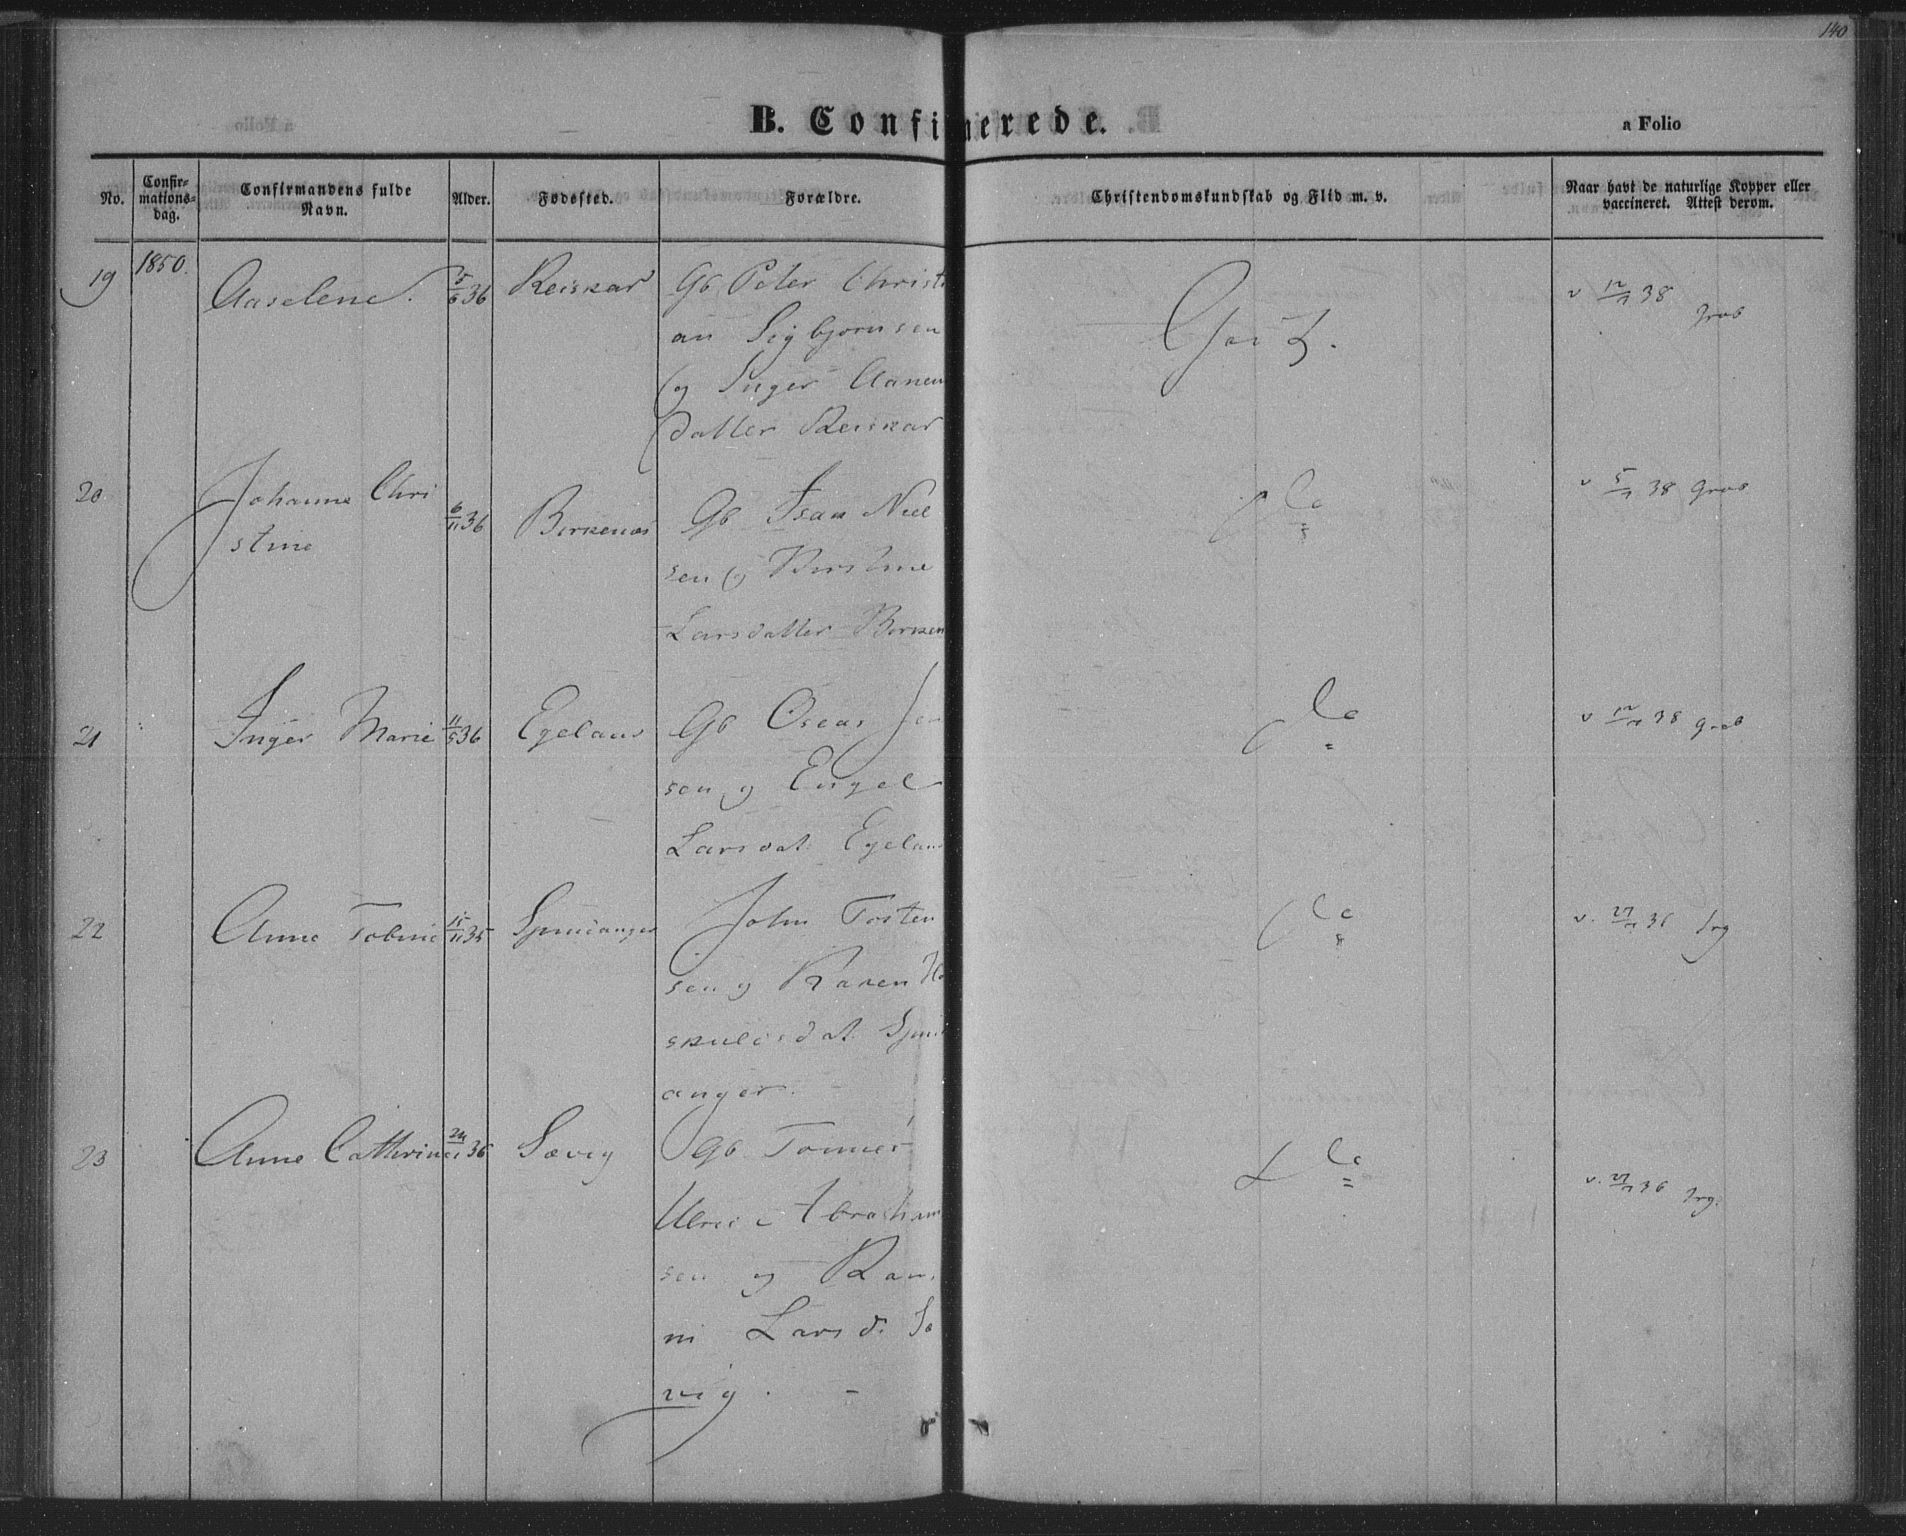 140
B. Confirmerede.
a Folio
No.
Confir-
mations-
dag.
Confirmandens fulde
Navn.
Alder.
Fødested.
Forældre.
Christendomskundskab og Flid m. v.
Naar havt de naturlige Kopper eller
vaccineret. Attest derom.
19 1850. Aaselene. 5/6 36 Reiskar Gb Peter Christi
an Sigbjørnsen
og Inger Aanen
datter Reiskar
v 12/7 38
20 Johanne Chri
stine
6/11 36 Birkenæs Gb Isak Niel
sen og Kirstine
Larsdatter Birken
v 5/7 38 Grab
21 Inger Marie 11/5 36 Egeland Gb Oscar Jen
sen og Engel
Larsdat. Egeland
v 12/7 38 Grab
22 Anne Tobine 15/11 35 John Tosten
sen og Karen
skuldsdat.
anger.
v. 27/7 36
23 Anne Cathrine 36 Sævig Gb Tønnes
Ulric Abraham
sen og Ran
ni Larsd. Sæ
vig.
v. 27/7 36